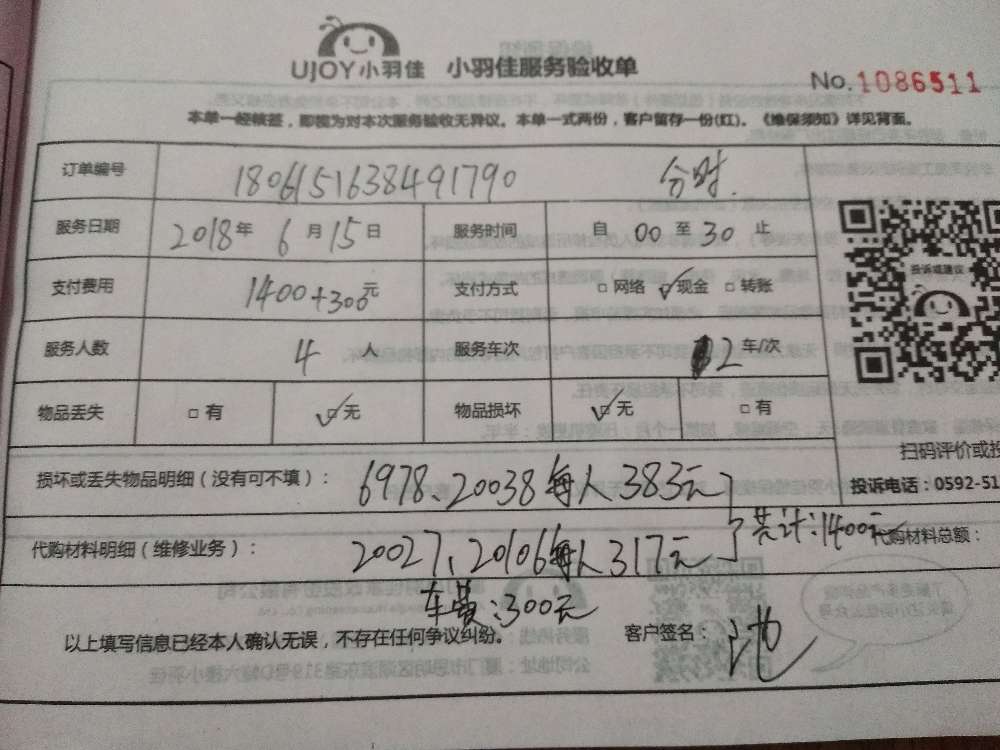 UJOY小羽佳 小羽佳服务验收单
No.1086511
本单一经核签，即视为对本次服务验收无异议。本单一式两份，客户留存一份(红)。《维保须知》详见背面。
订单编号 1806151638491790 分时
服务日期 2018年6月15日 服务时间 自00至30止
支付费用 1400+300元 支付方式 □网络 ☑现金 □转账
投诉或建议
服务人数 4人 服务车次 2车/次
物品丢失 □有 ☑无 物品损坏 ☑无 □有
扫码评价或投
损坏或丢失物品明细（没有可不填）： 6978、20038每人383元
投诉电话：0592-51
代购材料明细（维修业务）： 20027、20106每人317元 共计：1400元
代购材料总额：
车费：300元
以上填写信息已经本人确认无误，不存在任何争议纠纷。 客户签名：